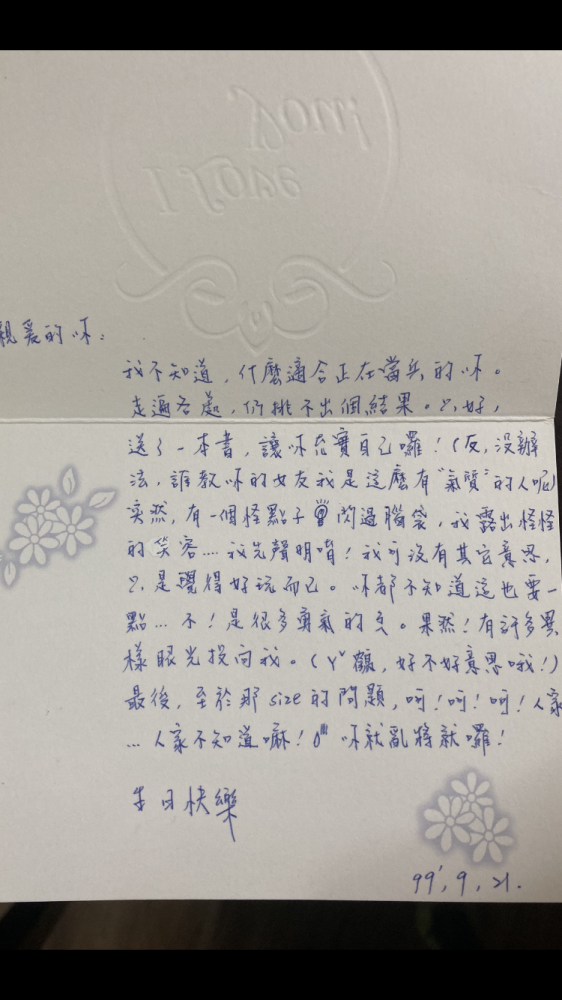 I Love
You!
親爱的吥：
我不知道，什麼適合正在當兵的吥。
走遍各處，仍挑不出個結果。只好，
送了一本書，讓吥充實自己囉！（反，沒辦
法，誰教吥的女友我是這麼有"氣質"的人呢）
突然，有一個怪點子 閃過腦袋，我露出怪怪
的笑容....我先聲明唷！我可沒有其它意思，
只是覺得好玩而已。吥都不知道這也要一
點...不！是很多勇氣的ㄝ。果然！有許多異
樣眼光投向我。（ㄚˇ ，好不好意思哦！）
最後，至於那size的問題，呵！呵！呵！人家
...人家不知道嘛！ 吥就亂將就囉！
生日快樂
99'，9，21.